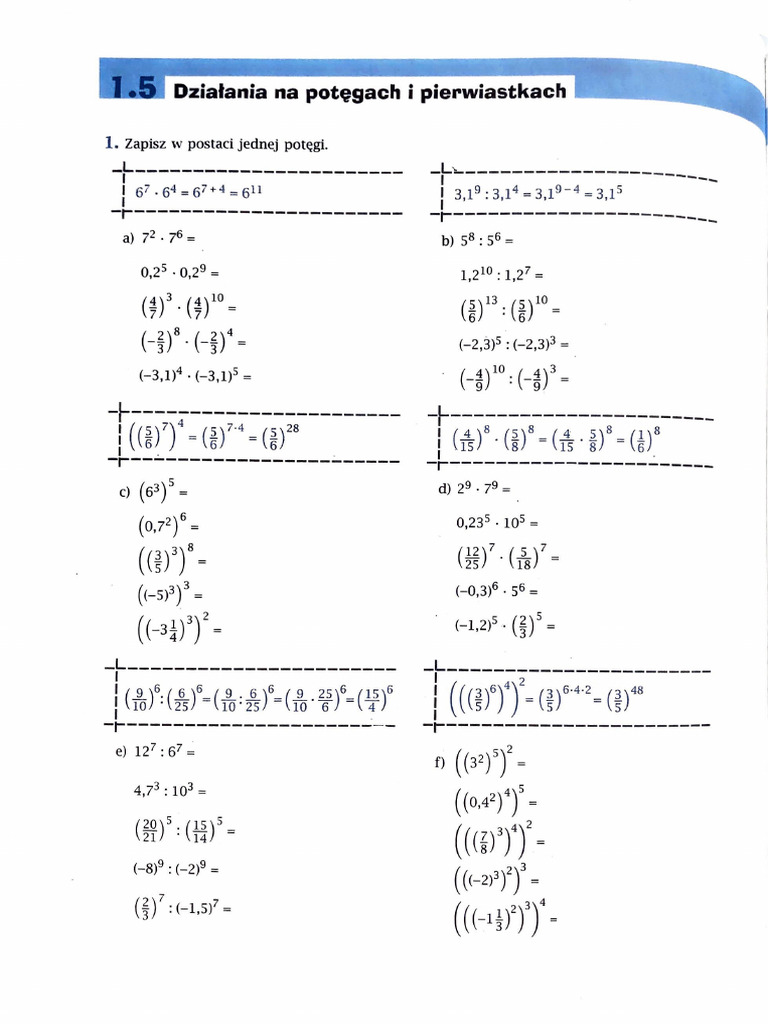 1.5 Działania na potęgach i pierwiastkach
1. Zapisz w postaci jednej potęgi.
6⁷ · 6⁴ = 6⁷⁺⁴ = 6¹¹
3,1⁹ : 3,1⁴ = 3,1⁹⁻⁴ = 3,1⁵
a) 7² · 7⁶ =
0,2⁵ · 0,2⁹ =
(4/7)³ · (4/7)¹⁰ =
(−2/3)⁸ · (−2/3)⁴ =
(−3,1)⁴ · (−3,1)⁵ =
b) 5⁸ : 5⁶ =
1,2¹⁰ : 1,2⁷ =
(5/6)¹³ : (5/6)¹⁰ =
(−2,3)⁵ : (−2,3)³ =
(−4/9)¹⁰ : (−4/9)³ =
((5/6)⁷)⁴ = (5/6)⁷·⁴ = (5/6)²⁸
(4/15)⁸ · (5/8)⁸ = (4/15 · 5/8)⁸ = (1/6)⁸
c) (6³)⁵ =
(0,7²)⁶ =
((3/5)³)⁸ =
((−5)³)³ =
((−3 1/4)³)² =
d) 2⁹ · 7⁹ =
0,23⁵ · 10⁵ =
(12/25)⁷ · (5/18)⁷ =
(−0,3)⁶ · 5⁶ =
(−1,2)⁵ · (2/3)⁵ =
(9/10)⁶ : (6/25)⁶ = (9/10 : 6/25)⁶ = (9/10 · 25/6)⁶ = (15/4)⁶
(((3/5)⁶)⁴)² = (3/5)⁶·⁴·² = (3/5)⁴⁸
e) 12⁷ : 6⁷ =
4,7³ : 10³ =
(20/21)⁵ : (15/14)⁵ =
(−8)⁹ : (−2)⁹ =
(2/3)⁷ : (−1,5)⁷ =
f) ((3²)⁵)² =
((0,4²)⁴)⁵ =
(((7/8)³)⁴)² =
(((−2)³)²)³ =
(((−1 1/3)²)³)⁴ =